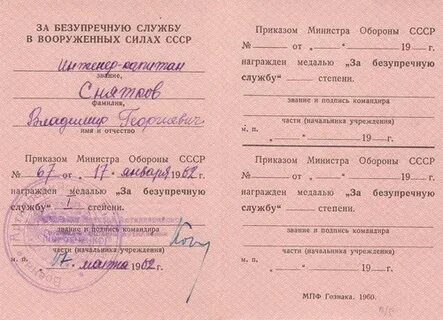 ЗА БЕЗУПРЕЧНУЮ СЛУЖБУ
В ВООРУЖЕННЫХ СИЛАХ СССР
инженер-капитан
звание,
Снятков
фамилия,
Владимир Георгиевич
имя и отчество
Приказом Министра Обороны СССР
№ 67 от „17“ января 1962 г.
награжден медалью „За безупречную
службу“ I степени.
звание и подпись командира
части (начальника учреждения)
м. п. „17“ марта 1962 г.
Приказом Министра Обороны СССР
№ от „ “ 19 г.
награжден медалью „За безупречную
службу“ степени.
звание и подпись командира
части (начальника учреждения)
м. п. „ “ 19 г.
Приказом Министра Обороны СССР
№ от „ “ 19 г.
награжден медалью „За безупречную
службу“ степени.
звание и подпись командира
части (начальника учреждения)
м. п. „ “ 19 г.
МПФ Гознака. 1960.